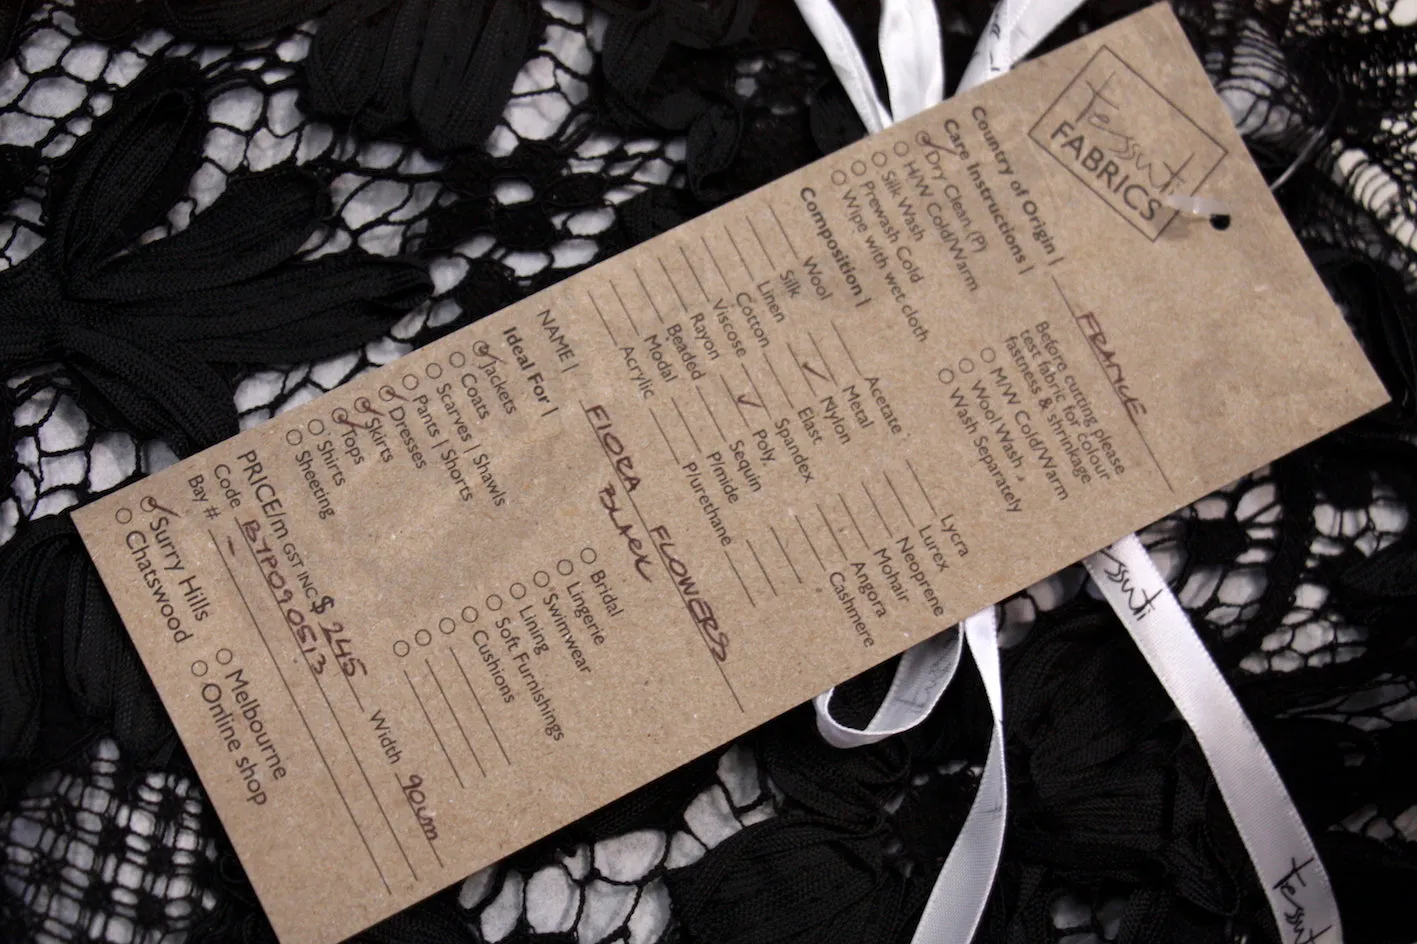 tessuti
FABRICS
Country of Origin | FRANCE
Care Instructions |
Dry Clean (P)
H/W Cold/Warm
Silk Wash
Prewash Cold
Wipe with wet cloth
Before cutting please
test fabric for colour
fastness & shrinkage
M/W Cold/Warm
Wool Wash
Wash Separately
Composition |
Wool
Silk
Linen
Cotton
Viscose
Rayon
Beaded
Modal
Acrylic
Acetate
Metal
Nylon
Elast
Spandex
Poly
Sequin
P/mide
P/urethane
Lycra
Lurex
Neoprene
Mohair
Angora
Cashmere
NAME | FIORA FLOWERS
BLACK
Ideal For |
Jackets
Coats
Scarves | Shawls
Pants | Shorts
Dresses
Skirts
Tops
Shirts
Sheeting
Bridal
Lingerie
Swimwear
Lining
Soft Furnishings
Cushions
PRICE/m GST INC $ 245 Width 90cm
Code BYP090513
Bay # -
Surry Hills
Chatswood
Melbourne
Online shop
tessuti